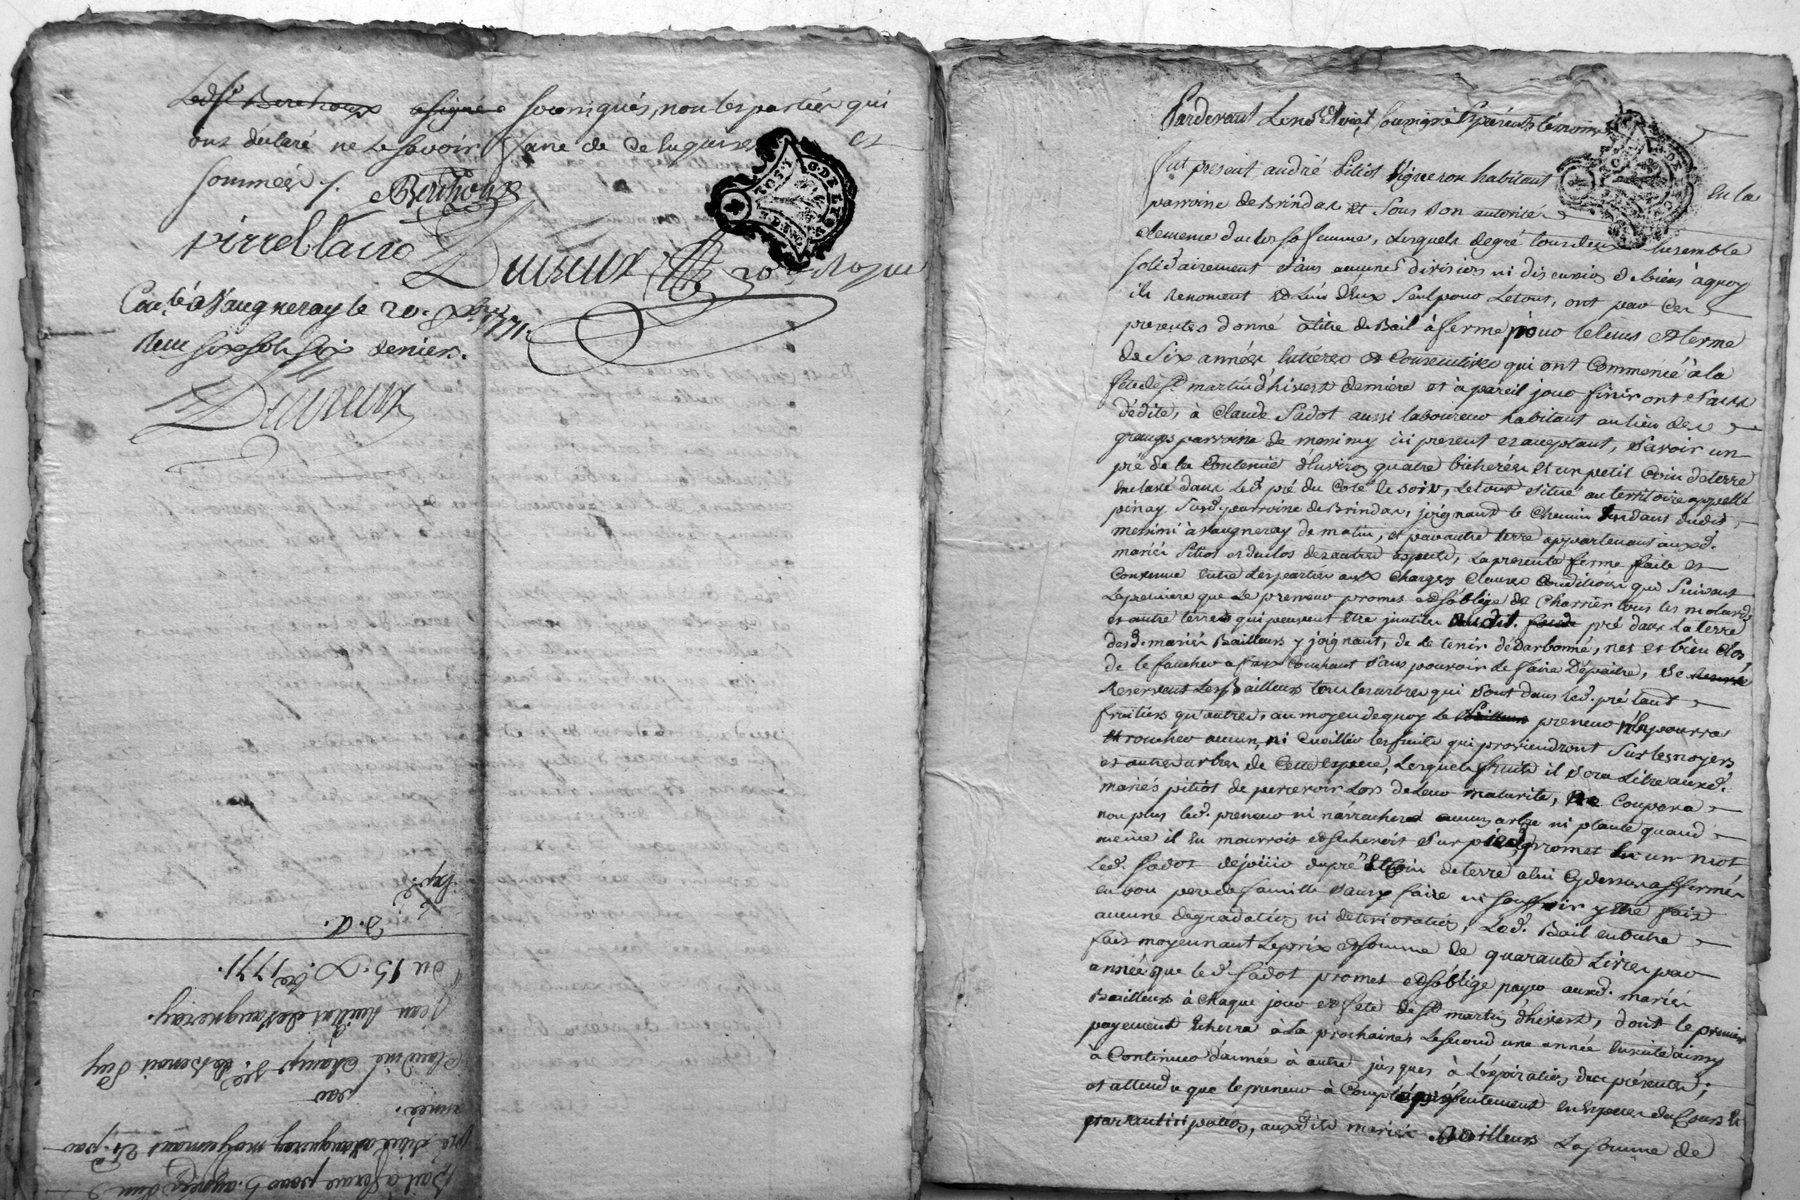 Led.t Berthoux a signé soussignés, non les parties qui
ont déclaré ne le savoir de ce enquises et
sommées /. Berthoux
pierreblanc Dutreux
à Vaugneray le 20. xbre 1771.
Reçu six sols six deniers.
Dutreux
du 15. X.bre 1771.
Jean de Vaugneray.
à
Claudine Champ de Benoit Puy
par
année.
pré situé à Vaugneray moyenant par
Bail à ferme pour 5. années d'un
Pardevant Le no.re soussigné & présents témoins
fut présent andré Pitiot Vigneron habitant en la
parroine de Brindas et sous son autorité
clemence duclos sa femme, Lesquels de gré tous deux Ensemble
solidairement sans aucune division ni discution de biens à quoy
ils Renoncent & L'un d'Eux seul pour Letout, ont par Ces
presentes donné à titre de Bail à ferme pour le tems & terme
de six années Entieres et Consecutives qui ont Commencé à la
fete de St martin d'hivert derniere et à pareil jour finiront sans
dédite, à Claude Fadot aussi laboureur habitant au lieu des
granges parroine de messimy ici present et acceptant, sçavoir un
pré de la Contenüe d'Environ quatre bicherées et un petit Coin de terre
Enclavé dans Led. pré du Coté de soir, Le tout situé au territoire appellé
pinay susd. parroine de Brindas, joignant le Chemin tendant dudit
messimi à Vaugneray de matin, et par autre terre appartenant auxd.
mariés Pitiot et duclos des autres aspects, La presente ferme faite et
Convenue Entre Les parties aux Charges Clauses Conditions qui suivent
La premiere que Le preneur promet & s'oblige de Charrier tous les molards
et autre terres qui peuvent Etre inutiles audit. pré dans La terre
desd. mariés Bailleurs y joignant, de le tenir net et bien clos,
de le faucher à faux Couchant sans pouvoir le faire Dépaitre, se
Reservent Les Bailleurs tous les arbres qui sont dans led. pré tant
fruitiers qu'autres, au moyen de quoy Le preneur n'En pourra
aucun, ni Cueillir les fruits qui proviendront sur les noyers
et autres arbres de Cette espece, Lesquels fruits il sera Libre auxd.
mariés pitiot de percevoir Lors de Leur maturité, ne Coupera
non plus led. preneur ni n'arrachera aucun arbre ni plante quand
même il En mourroit & secheroit sur pied, promet En un mot
Led. Fadot de joüir du pré & Coin de terre à lui Cydessus affermés
en bon pere de famille sans y faire ni souffrir y Etre fait
aucune degradation ni deterioration, Led. Bail En outre
fait moyennant Le prix & somme de quarante Livres par
année que le d. Fadot promet & s'oblige payer auxd. mariés
Bailleurs à Chaque jour & fete de St martin d'hivert, dont le premier
payement Echerra à La prochaine, Le second une année Ensuite ainsy
à Continuer d'année à autre jusques à L'expiration des présentes;
et attendu que le preneur à Compté présentement en Especes du Cours &
par anticipation, auxdits mariés Bailleurs La somme de